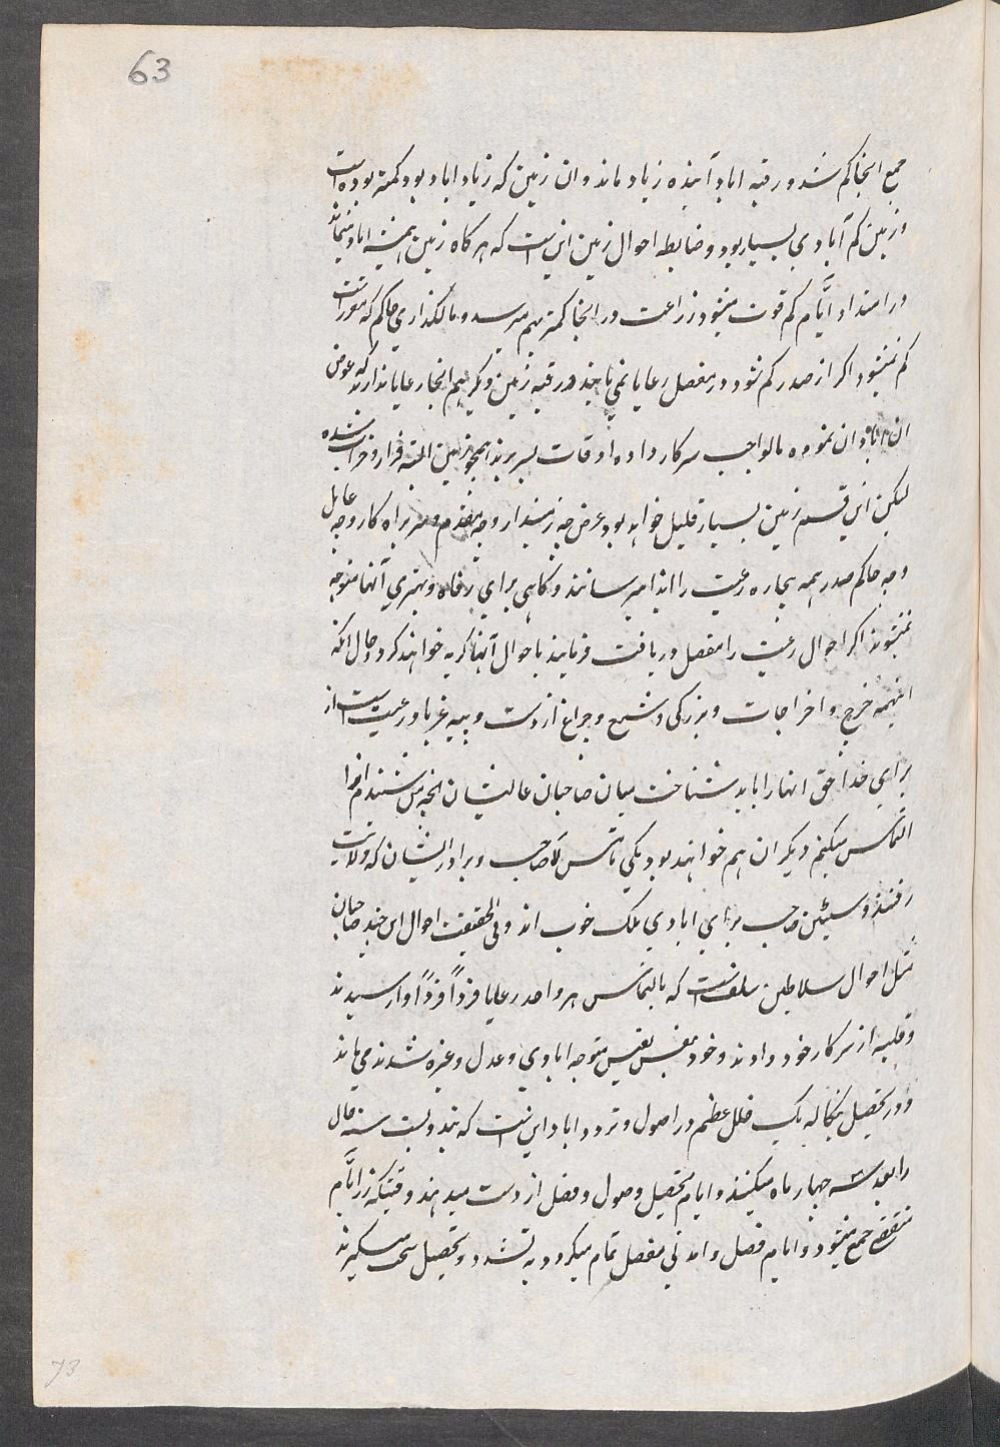 63
جمع انجا کم شد و رقبه اباد آینده زیاد ماند و ان زمین که زیاد اباد بود کمتر بوده است
و زمین کم آبادی بسیار بود و ضابطه احوال زمین این است که هر کاه زمین همیشه اباد میماند
و رامتداد ایّام کم قوت میشود زراعت در انجا کمتر بهم میرسد و مالکذاری حاکم که مقرر است
کم نمیشود اکر از صدر کم شود در مفصل رعایا نمی یابند و رقبه زمین دیکر هم انجا رعایا ندارند که عوض
ان اباد ان نموده مالواجب سرکار داده اوقات بسر برند همچو زمین البته فرار و خراب شده
لیکن این قسم زمین بسیار قلیل خواهد بود غرض چه زمیندار و چه مقدم و سربراه کار و چه عامل
و چه حاکم صدر همه بیچاره رعیت را ایذا میرسانند و کاهی برای رفاه و بهتری آنها متوجه
نمیشوند اکر احوال رعیت را مفصل دریافت فرمایند باحوال آنها کریه خواهند کرد و حال انکه
اینهمه خرج و اخراجات و بزرکی و شمع و چراغ از دست و پیه غربا و رعیت است از
برای خدا حق انها را باید شناخت میان صاحبان عالیشان انچه من شنیده ام
التماس میکنم دیکران هم خواهند بود یکی تامس لا صاحب و برادر ایشان که ولایت
رفتند و ستین صاحب برای ابادی ملک خوب اند و فی الحقیقت احوال این چند صاحبان
مثل احوال سلاطین سلف است که بالتماس هر واحد رعایا فرداً فرداً وارسیدند
و قلبه از سرکار خود دادند و خود بنفس نفیس متوجه ابادی و عدل و غیره شدند می مانند
و در تحصیل بنکاله یک خلل عظیم در اصول و تردد اباد این است که بندوبست سنه حال
را بعد سه چهار ماه میکنند و ایام تحصیل وصول و فصل از دست میدهند وقتیکه زر ایّام
منقضی جمع میشود و ایام فصل و امدنی مفصل تمام میکردد به تشدد و تحصیل سخت میکیرند
73